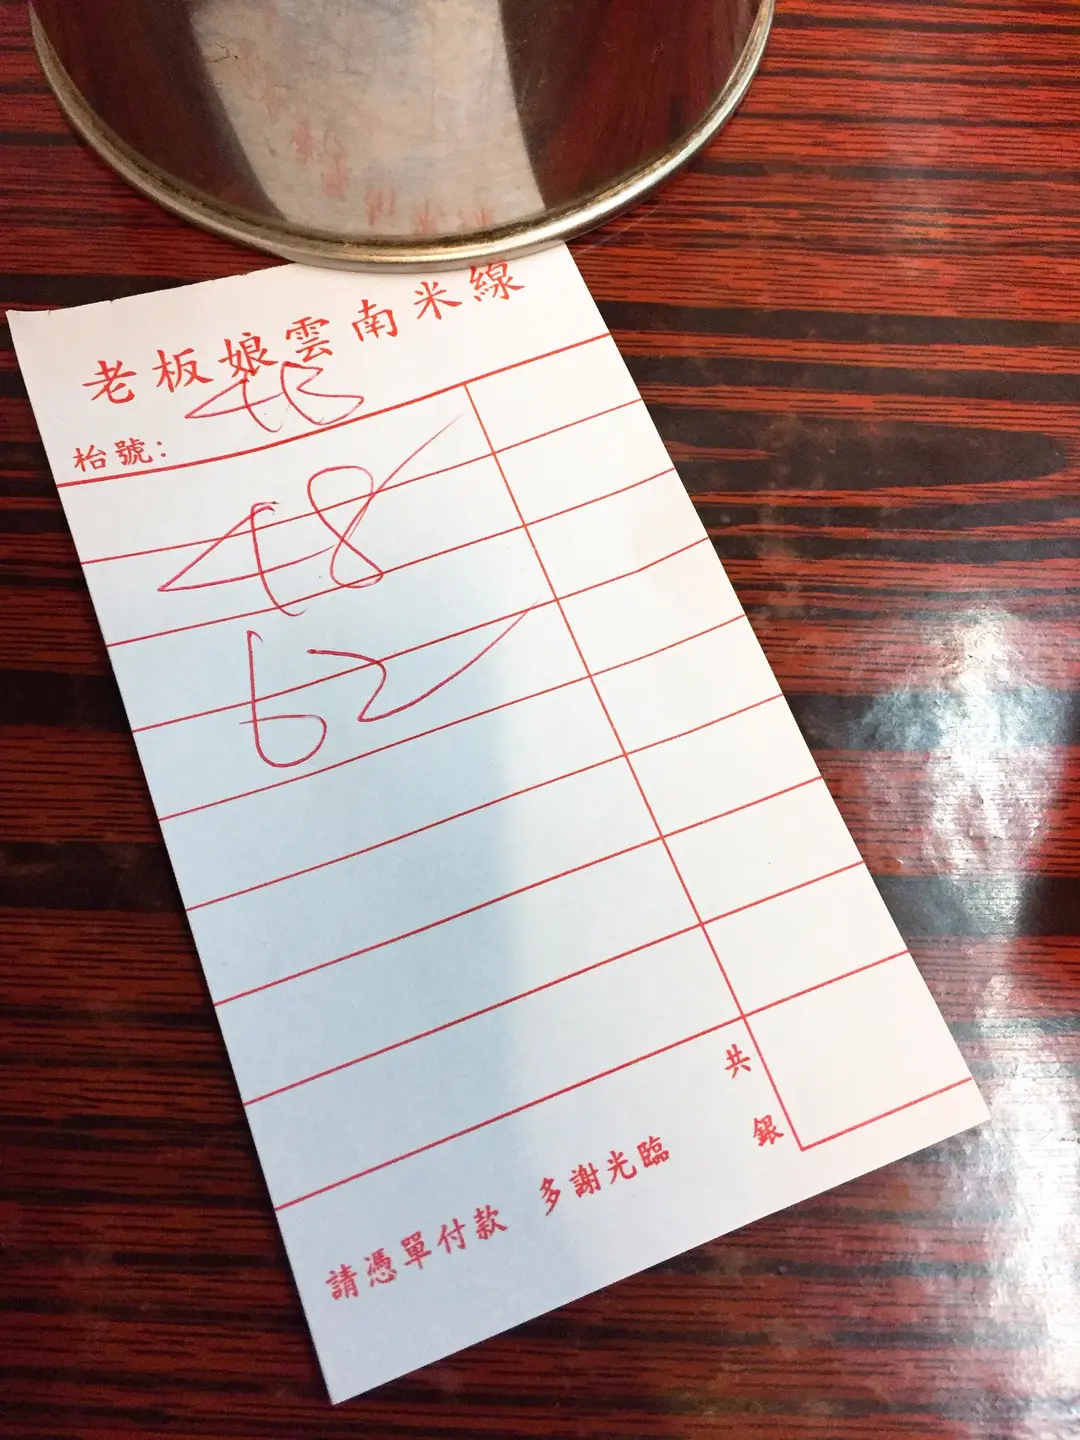 老板娘雲南米線
枱號：
48
62
共
銀
請憑單付款 多謝光臨